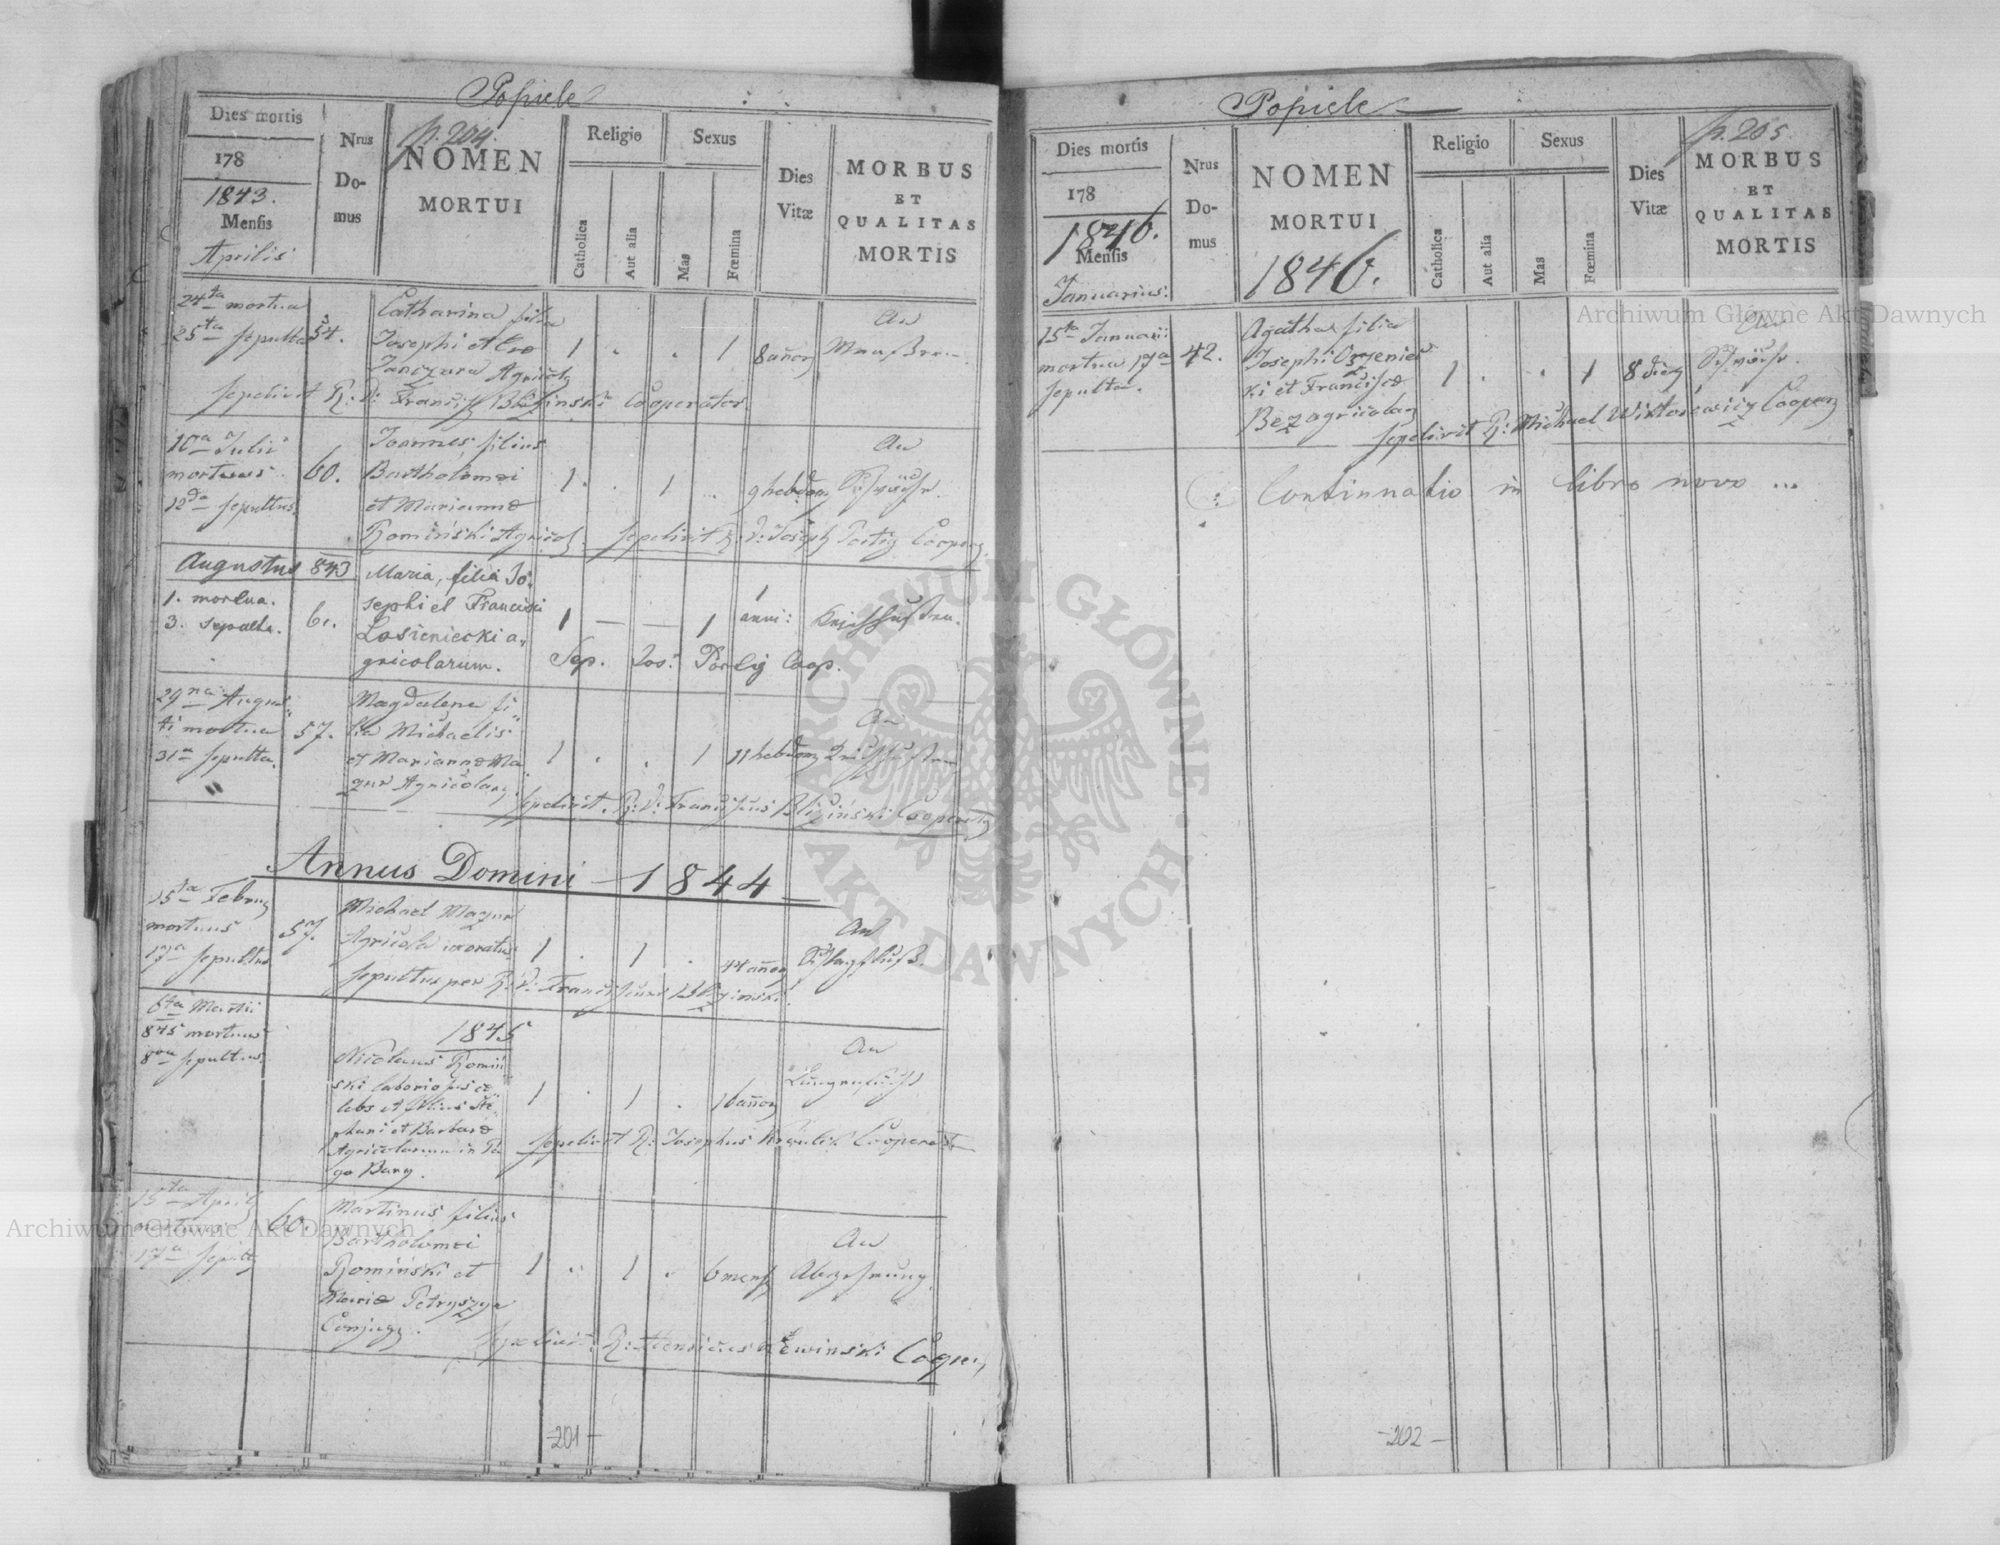 Popiele
p. 204.
Dies mortis
178
1843.
Mensis
Aprilis
Nrus
Do-
mus
NOMEN
MORTUI
Religio
Catholica
Aut alia
Sexus
Mas
Fœmina
Dies
Vitæ
MORBUS
ET
QUALITAS
MORTIS
24ta mortua
25ta sepulta
54.
Catharina filia
Josephi et
Agricol
1 . . 1
8 anor
An
sepelivit R: D: Francis Cooperator
10a Julii
mortuus
12da sepultus.
60.
Joannes, filius
Bartholomæi
et Mariannæ
Romiński Agricol.
1 . 1 ..
9 hebdom
An
Schwäche.
sepelivit R: D: Joseph Cooper.
Augustus 843
1. mortua.
3. sepulta.
61.
Maria, filia Jo-
sephi et Francisci
Losieniecki a-
gricolarum.
1 — — 1
1
anni:
Keichhusten.
Sep. Jos: Coop.
29na Augus-
ti mortua
31a sepulta.
57.
Magdalena fi-
lia Michaelis
et Mariannæ Ma-
zur Agricolar
1 . . 1
11 hebdom
An
sepelivit R: D: Franciscus Bliziński Cooperat
Annus Domini — 1844 —
15ta Febru
mortuus
17a sepultus
57.
Michael Mazur
Agricola uxoratus
1 . 1 .
44 anor
An
Schlagfluß.
Sepultus per R: D: Franciscum Bliziński.
6ta Martii
845 mortuus
8va sepultus
1845
Nicolaus Romiń-
ski laboriosus cæ-
lebs et filius Ste-
phani et Barbaræ
Agricolarum in Pa-
go Bary.
1 . 1 .
16 anor
An
Lungensucht
sepelivit R: Josephus Cooperat
15ta April
mortuus
17a sepult
60.
Martinus filius
Bartholomæi
Romiński et
Mariæ Petryszyn
Conjug.
1 .. 1 .
6 mens
An
Abzehrung.
sepelivit: R: Henricus Cooper
-201-
Popiele
p. 205
Dies mortis
178
1846.
Mensis
Januarius.
Nrus
Do-
mus
NOMEN
MORTUI
1846.
Religio
Catholica
Aut alia
Sexus
Mas
Fœmina
Dies
Vitæ
MORBUS
ET
QUALITAS
MORTIS
15ta Januarii
mortua 17a
sepulta.
42.
Agatha filia
Josephi
ki et Franciscæ
Bez agricolar
1 . . 1
8 dier
An
Schwäche.
sepelivit R: Michael Wiktorewicz Cooper
(: Continuatio in libro novo ...
-202-
Archiwum Główne Akt Dawnych
Archiwum Główne Akt Dawnych
ARCHIWUM GŁÓWNE · AKT DAWNYCH ·